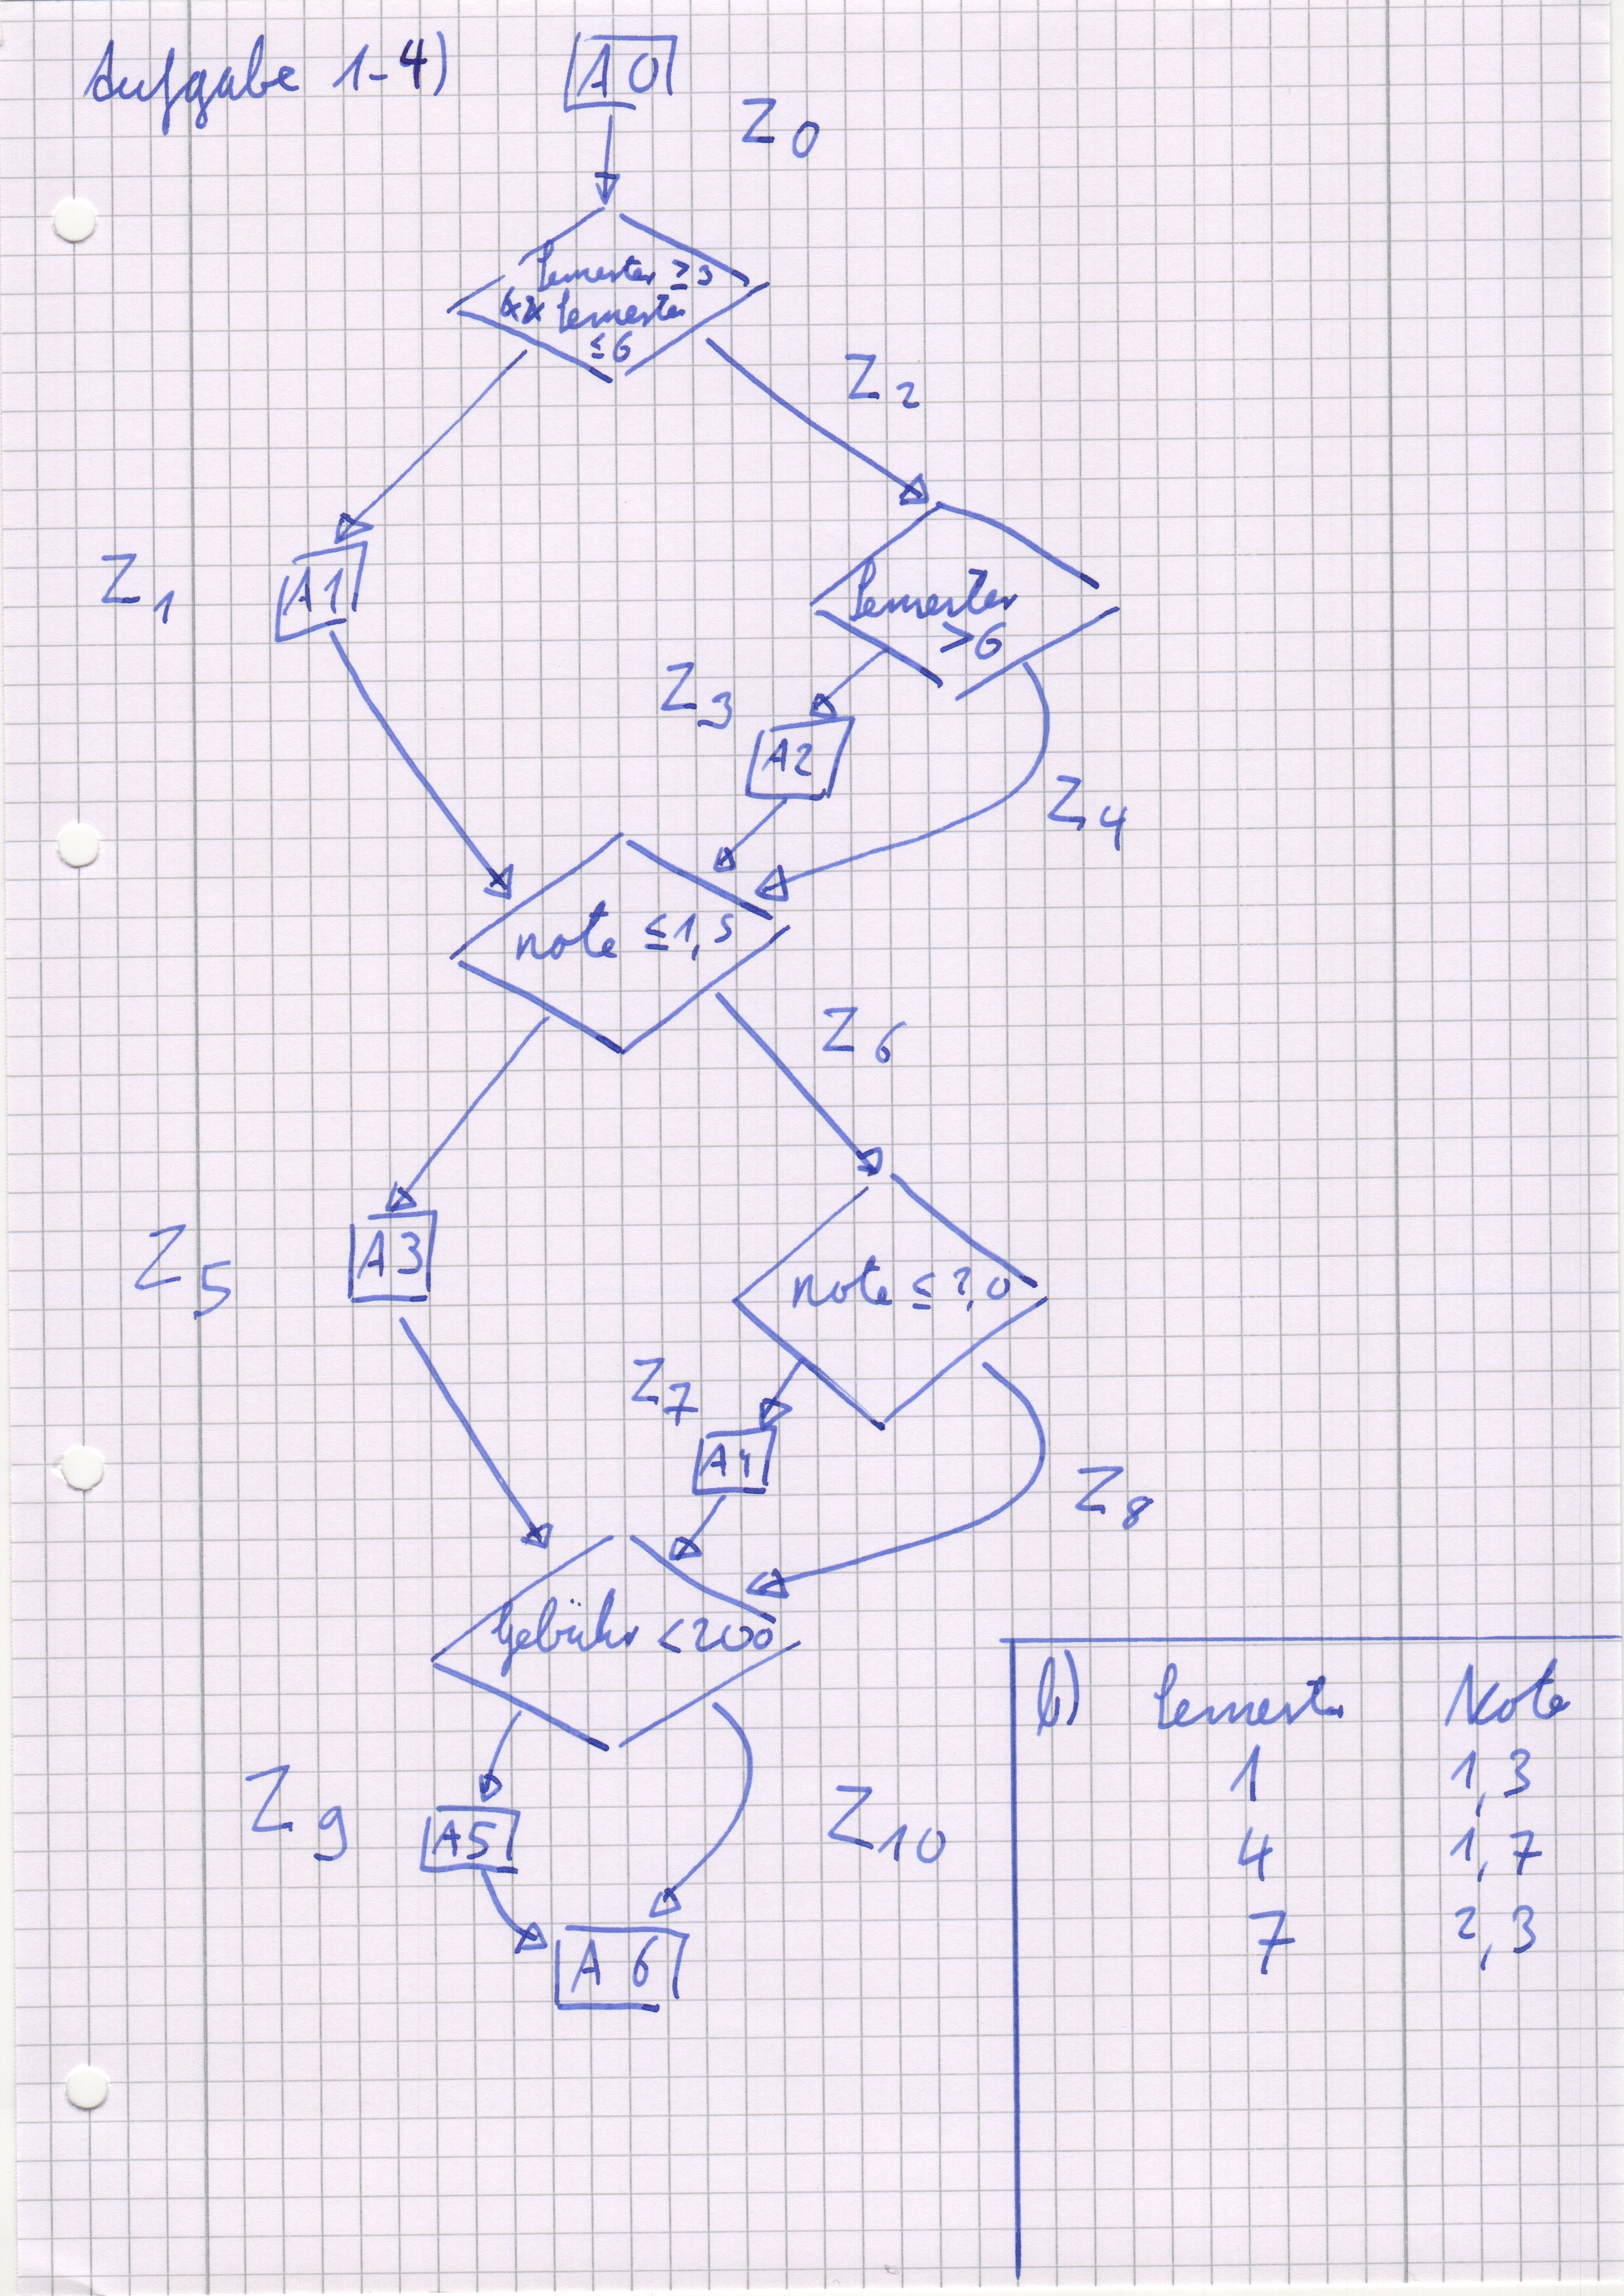 Aufgabe 1-4)
A0
Z0
Semester ≥ 3
&& Semester
≤ 6
Z2
Z1
A1
Semester
> 6
Z3
A2
Z4
note ≤ 1,5
Z6
Z5
A3
note ≤ 2,0
Z7
A4
Z8
Gebühr < 200
Z9
A5
Z10
A6
b) Semester Note
1 1,3
4 1,7
7 2,3